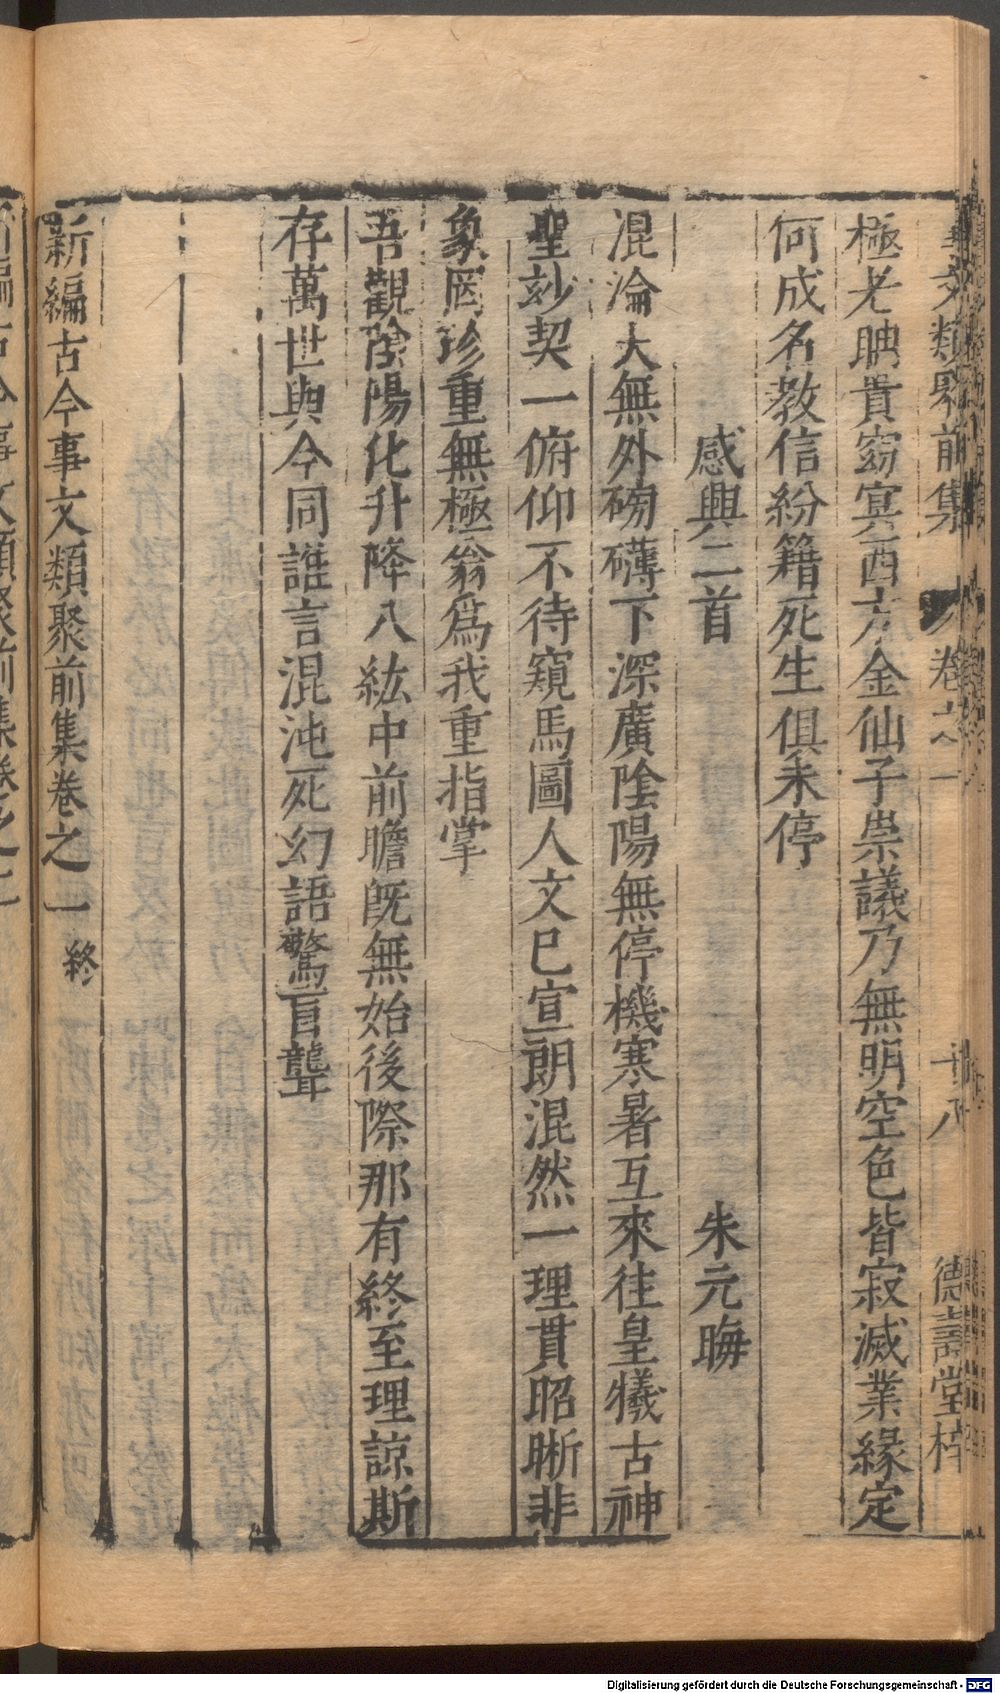 事文類聚前集
卷之一
十八
德壽堂梓
極老聃貴窈冥西方金仙子崇議乃無明空色皆寂滅業緣定
何成名教信紛籍死生俱未停
感興二首
朱元晦
混淪大無外磅礴下深廣陰陽無停機寒暑互來往皇犧古神
聖妙契一俯仰不待窺馬圖人文已宣朗混然一理貫昭晰非
象罔珍重無極翁爲我重指掌
吾觀陰陽化升降八紘中前瞻旣無始後際那有終至理諒斯
存萬世與今同誰言混沌死幻語驚盲聾
新編古今事文類聚前集卷之一
終
新編古今事文類聚前集卷之二
Digitalisierung gefördert durch die Deutsche Forschungsgemeinschaft - DFG